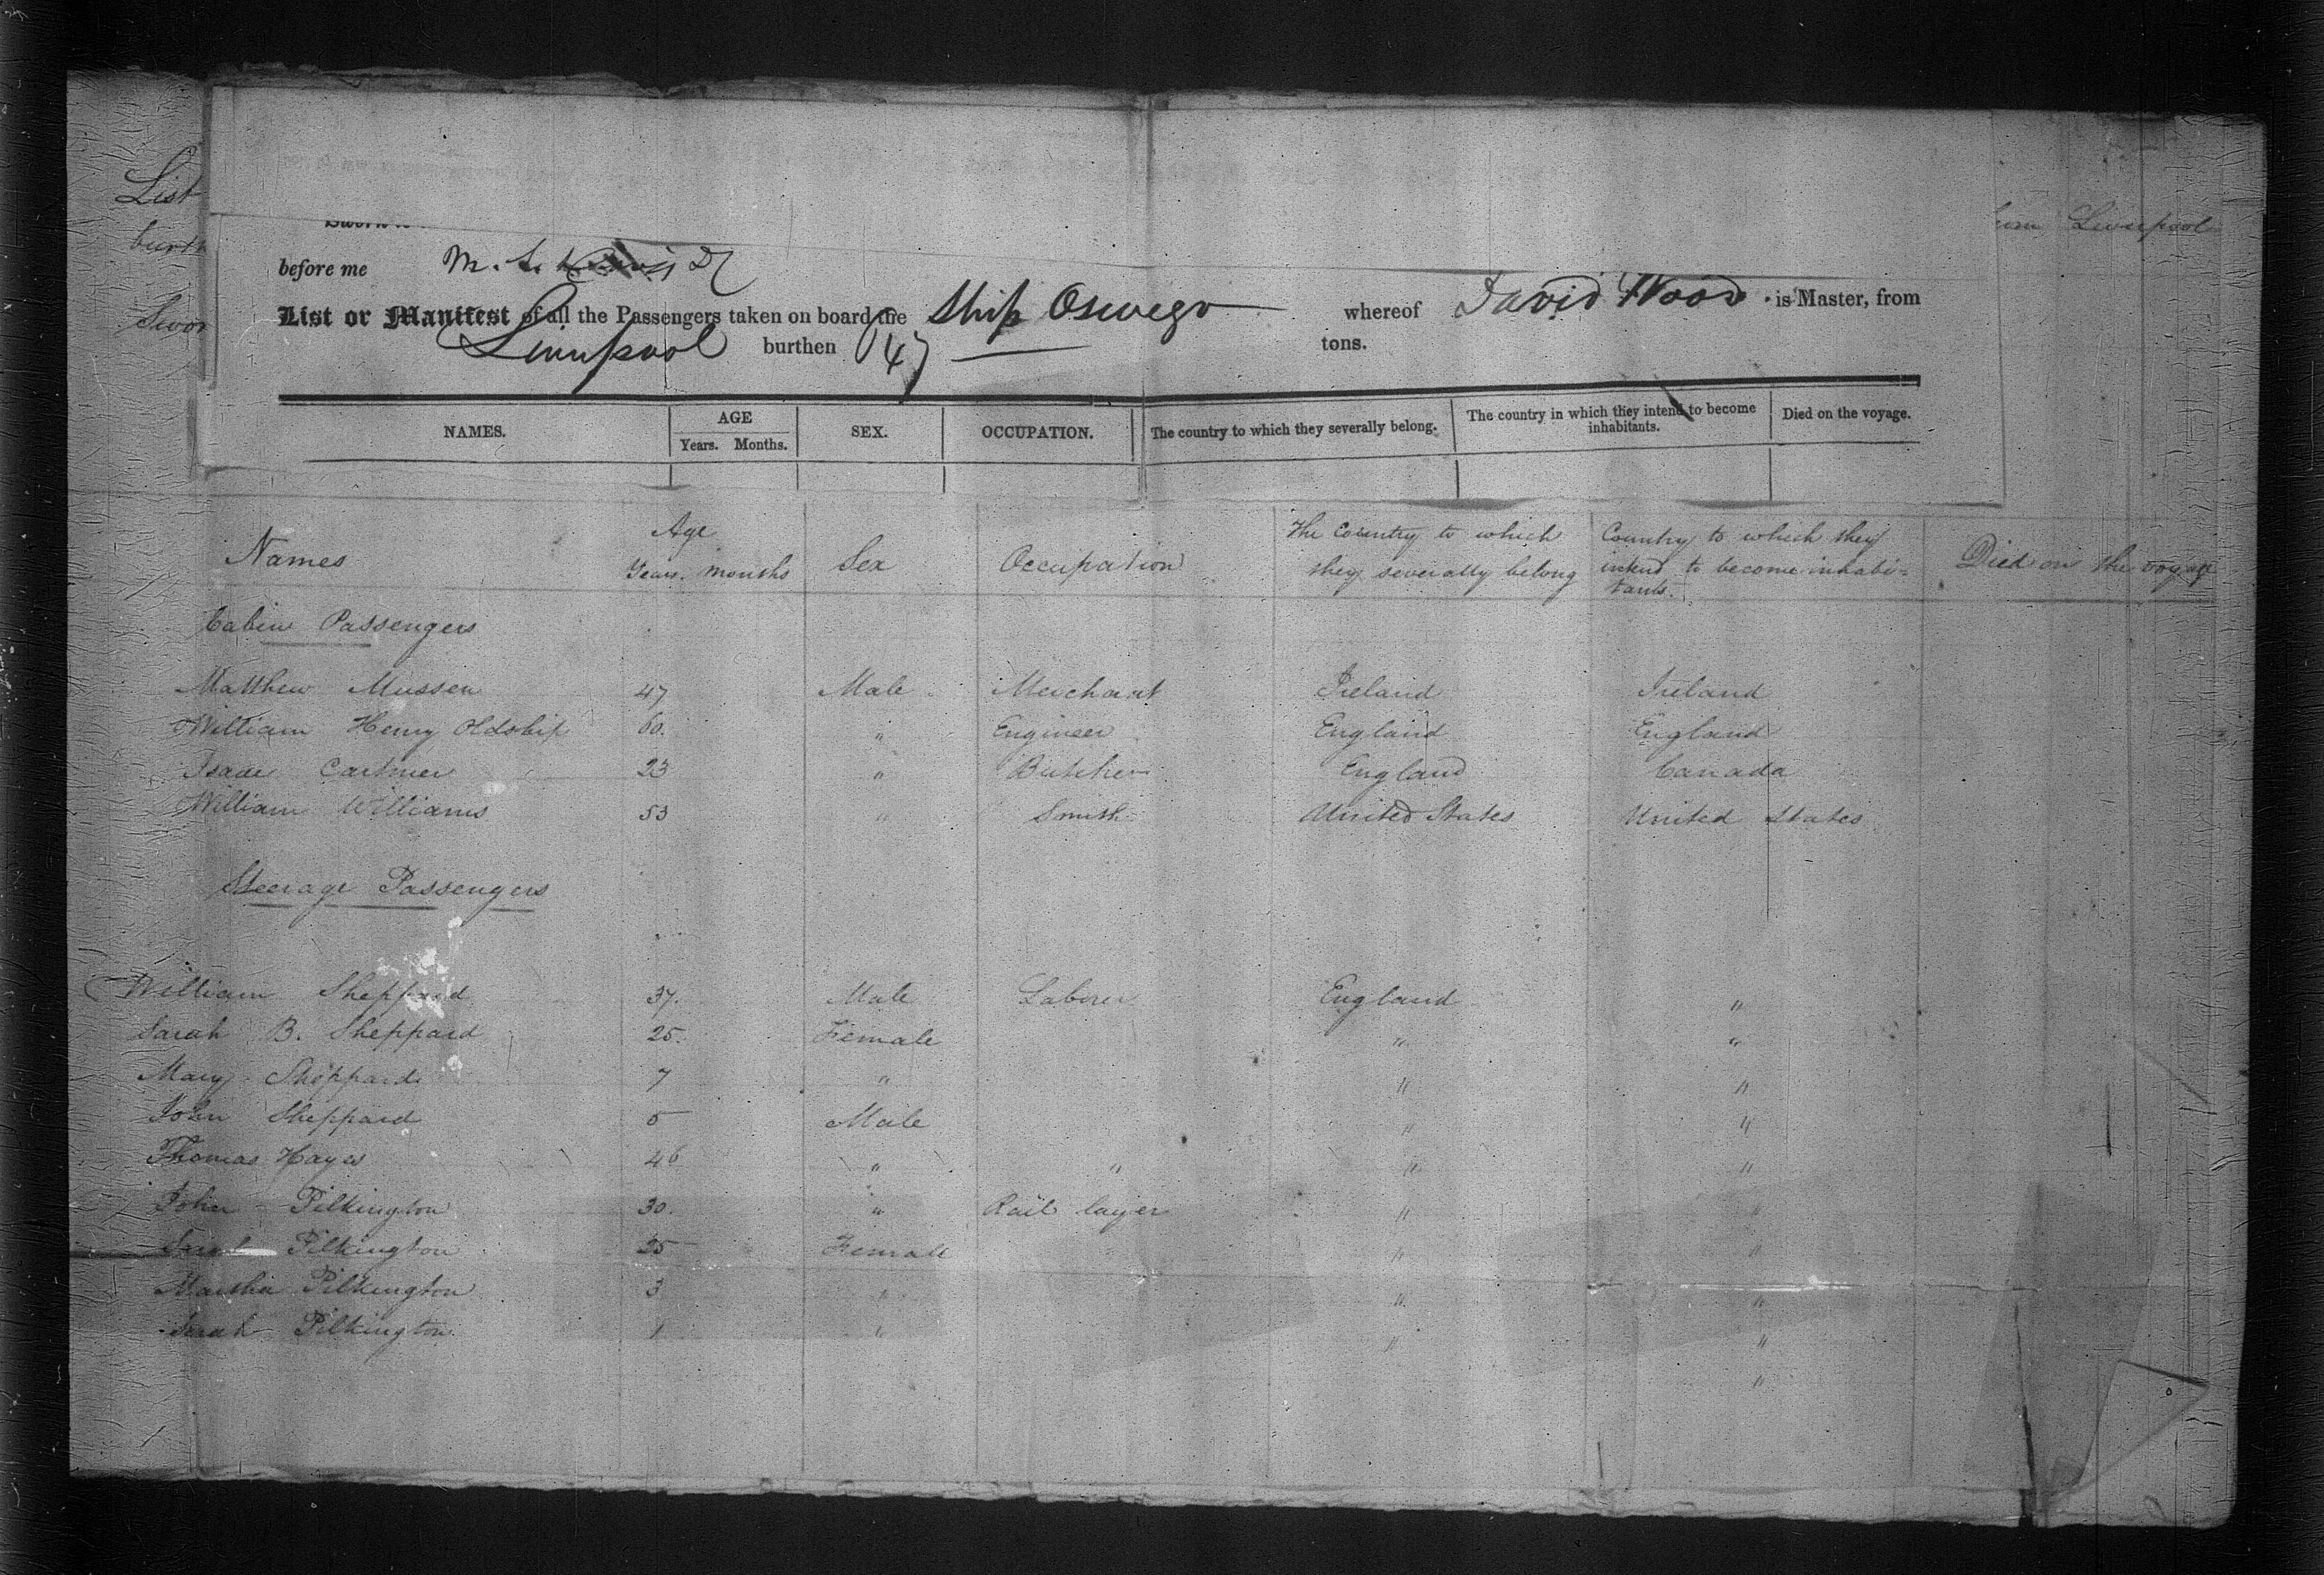 List
burth
Swor
from Liverpool
before me M.
List or Manifest of all the Passengers taken on board the Ship Oswego whereof David Wood is Master, from
Liverpool burthen 647 tons.
NAMES. AGE Years. Months. SEX. OCCUPATION. The country to which they severally belong. The country in which they intend to become inhabitants. Died on the voyage.
Names Age Years. Months Sex Occupation The Country to which they severally belong Country to which they intend to become inhabi= tants. Died on the voyage
Cabin Passengers
Matthew Mussen 47 Male Merchant Ireland Ireland
William Henry Oldship 60. " Engineer England England
Isaac Cartmer 23 " Butcher England Canada
William Williams 53 " Smith United States United States
Steerage Passengers
William Sheppard 37. Male Laborer England "
Sarah B. Sheppard 25. Female " "
Mary Sheppard 7 " " "
John Sheppard 5 Male " "
Thomas Hayes 46 " " " "
John Pilkington 30. " Rail layer " "
Sarah Pilkington 25 Female " "
Martha Pilkington 3 " " "
Sarah Pilkington 1 " " "
"